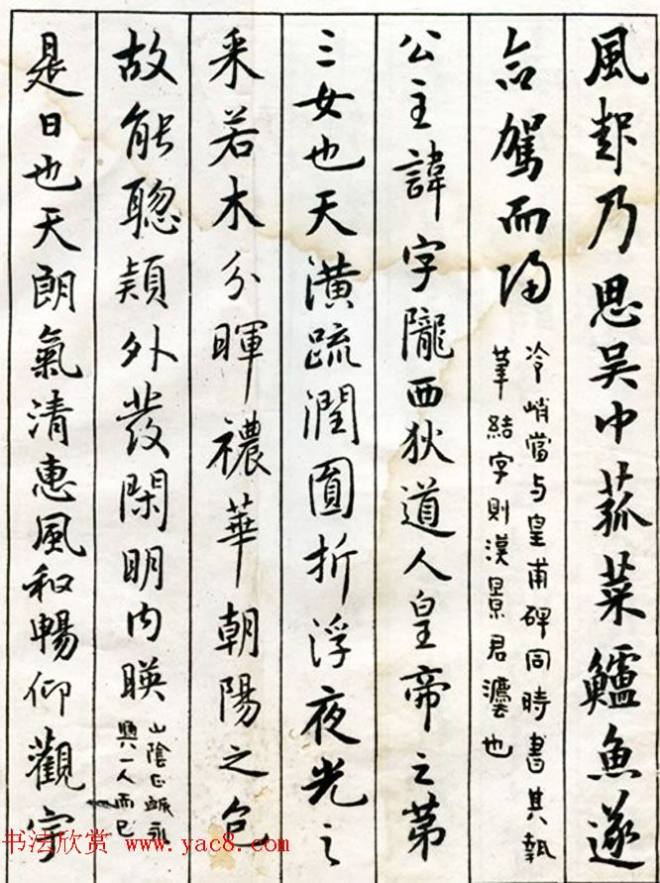 風起乃思吳中菰菜鱸魚遂
命駕而歸
冷峭當与皇甫碑同時書其執
筆結字則漢景君
也
公主諱字隴西狄道人皇帝之第
三女也天潢疏潤圓折浮夜光之
采若木分暉禯華朝陽之色
故能聰穎外發閑明内暎
山陰正嫡永
興一人而已
是日也天朗氣清惠風和暢仰觀宇
书法欣赏 www.yac8.com